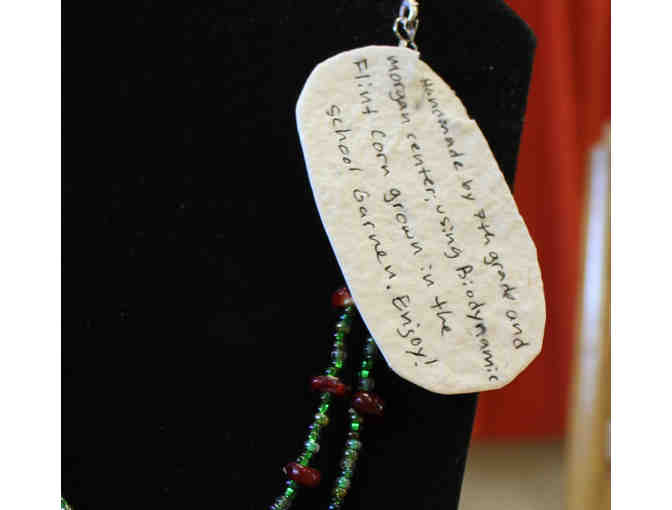 Handmade by 7th grade and
Morgan center, using Biodynamic
Flint corn grown in the
school Garnen. Enjoy!